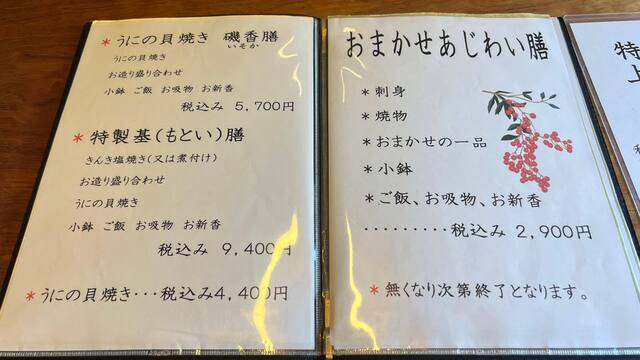 *うにの貝焼き 磯香膳
いそか
うにの貝焼き
お造り盛り合わせ
小鉢 ご飯 お吸物 お新香
税込み 5,700円
*特製基(もとい)膳
きんき塩焼き(又は煮付け)
お造り盛り合わせ
うにの貝焼き
小鉢 ご飯 お吸物 お新香
税込み 9,400円
*うにの貝焼き・・・税込み4,400円
おまかせあじわい膳
*刺身
*焼物
*おまかせの一品
*小鉢
*ご飯、お吸物、お新香
・・・・・・・・・税込み 2,900円
*無くなり次第終了となります。
特
上